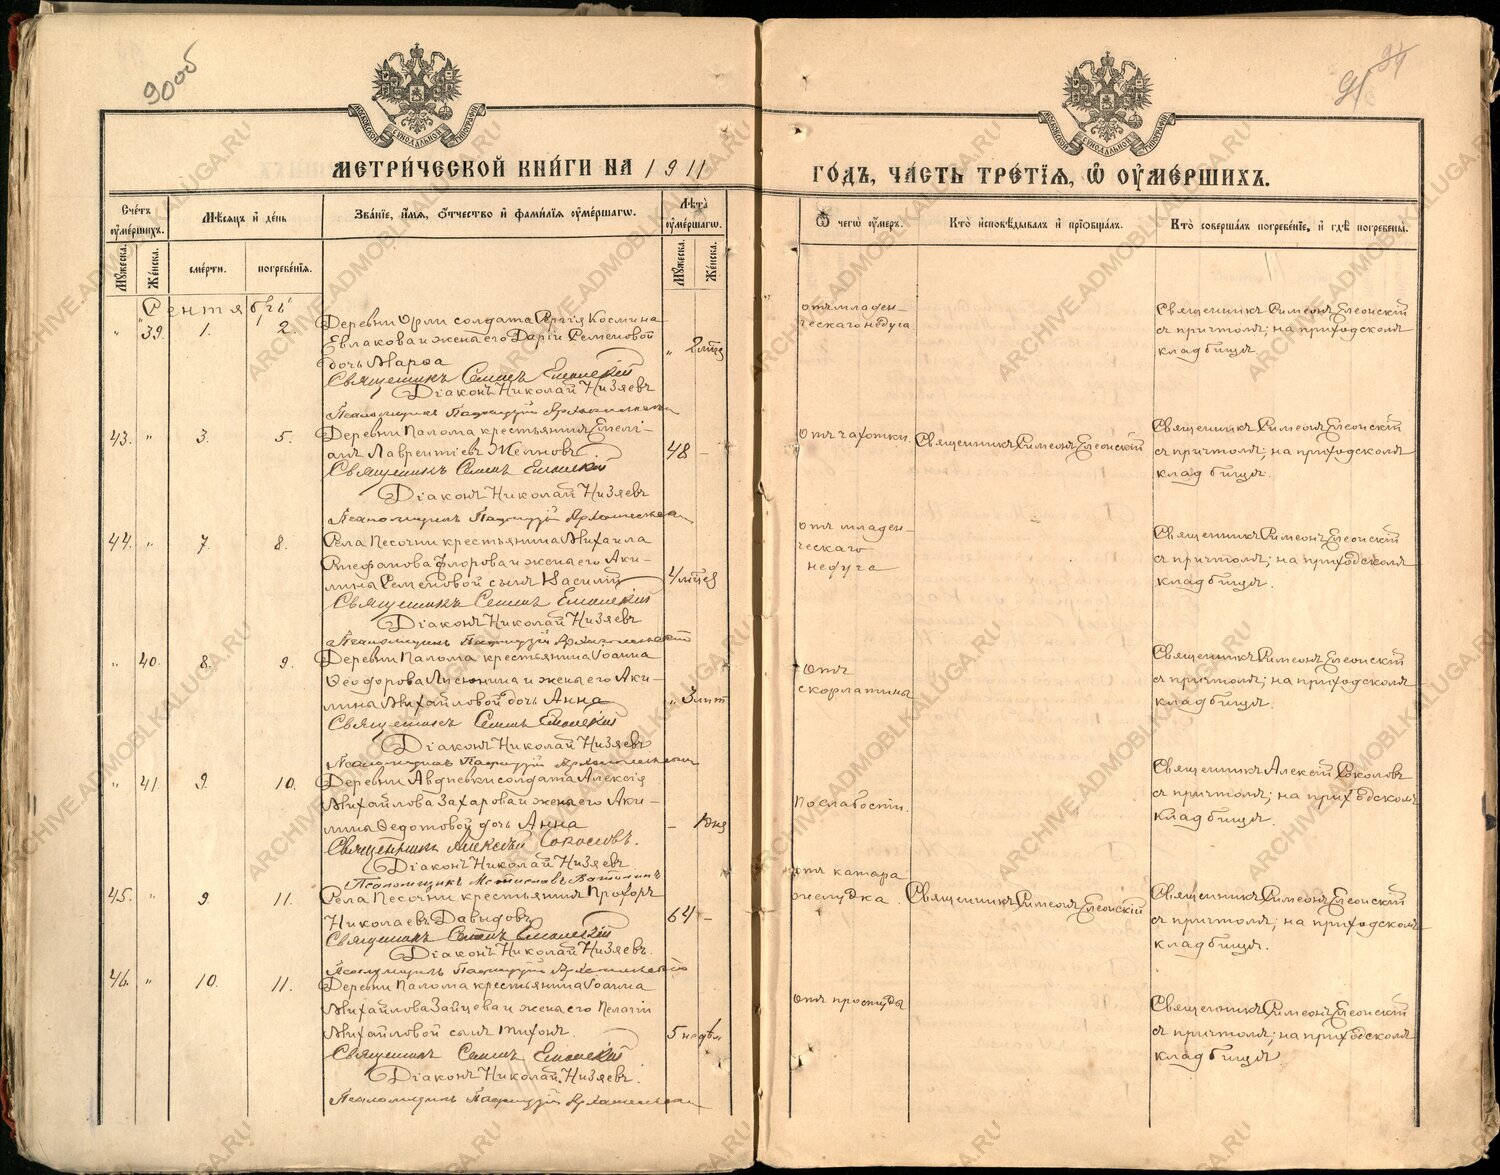 90об
91
94
МОСКОВСКОЙ СѴНОДАЛЬНОЙ ТИПОГРАФІИ
МОСКОВСКОЙ СѴНОДАЛЬНОЙ ТИПОГРАФІИ
МЕТРИ́ЧЕСКОЙ КНИ́ГИ НА 1911
ГО́ДЪ, ЧА́СТЬ ТРЕ́ТІѦ, Ѡ ОУМЕ́РШИХЪ.
Сче́тъ оуме́ршихъ.
Мужеска.
Же́нска.
Мѣ́сяцъ и де́нь
сме́рти.
погребе́нїя.
Зва́нїе, и́мя, о́тчество и фами́лїя оуме́ршагѡ.
Лѣ́та оуме́ршагѡ.
Мужеска.
Же́нска.
Ѿ чегѡ̀ оу́меръ.
Кто̀ исповѣ́дывалъ и прїѡбща́лъ.
Кто̀ соверша́лъ погребе́нїе, и гдѣ̀ погребены̀.
Сентябрь
" 39. 1. 2.
Деревни Орли солдата Сергія Космина
Евлакова и жены его Даріи Семеновой
дочь Марѳа
" 2 лѣт
Священникъ Симеонъ Елеонскій
Діаконъ Николай Низяевъ
Псаломщикъ
отъ младен-
ческаго недуга
Священникъ Симеонъ Елеонскій
съ причтомъ; на приходскомъ
кладбищѣ.
43. " 3. 5.
Деревни Палома крестьянинъ Емелі-
анъ Лаврентіевъ
48 –
Священникъ Симеонъ Елеонскій
Діаконъ Николай Низяевъ
Псаломщикъ
отъ чахотки.
Священникъ Симеонъ Елеонскій
Священникъ Симеонъ Елеонскій
съ причтомъ; на приходскомъ
кладбищѣ.
44. " 7. 8.
Села Песочни крестьянина Михаила
Стефанова Флорова и жены его Аки-
лины Семеновой сынъ Василій
4 мѣсяц
Священникъ Симеонъ Елеонскій
Діаконъ Николай Низяевъ
Псаломщикъ
отъ младен-
ческаго
недуга
Священникъ Симеонъ Елеонскій
съ причтомъ; на приходскомъ
кладбищѣ.
" 40. 8. 9.
Деревни Палома крестьянина Іоанна
Ѳеодорова и жены его Аки-
лины Михайловой дочь Анна
" 3 лѣт
Священникъ Симеонъ Елеонскій
Діаконъ Николай Низяевъ
Псаломщикъ
отъ
скорлатина
Священникъ Симеонъ Елеонскій
съ причтомъ; на приходскомъ
кладбищѣ.
" 41 9. 10.
Деревни Авдѣевки солдата Алексія
Михайлова Захарова и жены его Аки-
лины Ѳедотовой дочь Анна
–
Священникъ Алексѣй Соколовъ.
Діаконъ Николай Низяевъ
Псаломщикъ
По слабости.
Священникъ Алексій Соколовъ
съ причтомъ; на приходскомъ
кладбищѣ.
45. " 9. 11.
Села Песочни крестьянинъ Прохоръ
Николаевъ Давидовъ
64 –
Священникъ Симеонъ Елеонскій
Діаконъ Николай Низяевъ.
Псаломщикъ
отъ катара
желудка
Священникъ Симеонъ Елеонскій
Священникъ Симеонъ Елеонскій
съ причтомъ; на приходскомъ
кладбищѣ.
46. " 10. 11.
Деревни Палома крестьянина Іоанна
Михайлова Зайцева и жены его Пелагіи
Михайловой сынъ Тихонъ.
5 недѣл
Священникъ Симеонъ Елеонскій
Діаконъ Николай Низяевъ.
Псаломщикъ
отъ простуды
Священникъ Симеонъ Елеонскій
съ причтомъ; на приходскомъ
кладбищѣ
ARCHIVE.ADMOBLKALUGA.RU